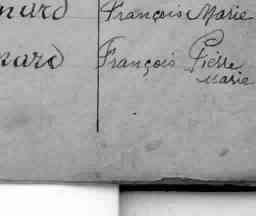 François Marie
François Pierre
Marie